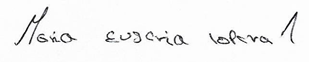 Maria eugenia lopera 1